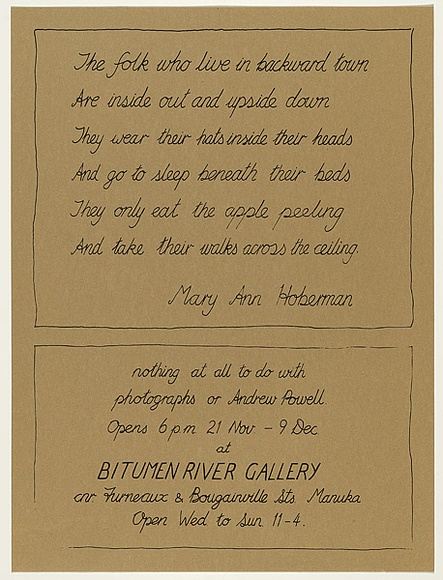 The folk who live in backward town
Are inside out and upside down
They wear their hats inside their heads
And go to sleep beneath their beds
They only eat the apple peeling
And take their walks across the ceiling.
Mary Ann Hoberman
nothing at all to do with
photographs or Andrew Powell
Opens 6 p.m 21 Nov - 9 Dec
at
BITUMEN RIVER GALLERY
cnr Furneaux & Bougainville Sts Manuka
Open Wed to Sun 11-4.